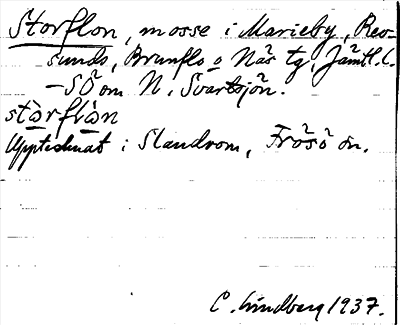 Storflon, mosse i Marieby, Rev-
sunds, Brunflo o Näs tg, Jämtl. l.
– SÖ om N. Svartsjön.
stòrflȧ̀n
Upptecknat i Slandrom, Frösö sn.
C. Lindberg 1937.